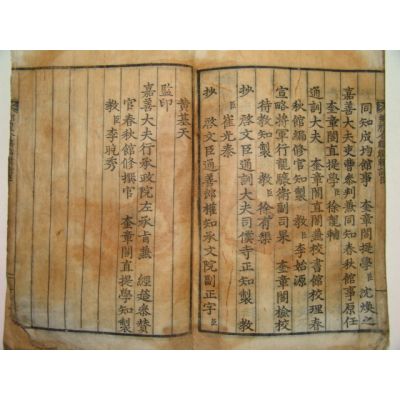 同知成均館事 奎章閣提學臣沈煥之
嘉善大夫吏曹叅判兼同知春秋館事原任
奎章閣直提學臣徐龍輔
通訓大夫 奎章閣直閣兼校書館校理春
秋館編修官知製 教臣李始源
宣略將軍行龍驤衛副司果 奎章閣檢校
待教知製 教臣徐有榘
抄 啓文臣通訓大夫司僕寺正知製 教
臣崔光泰
抄 啓文臣通善郎權知承文院副正字臣
黃基天
監印
嘉善大夫行承政院左承旨兼 經筵叅贊
官春秋館修撰官 奎章閣直提學知製
教臣李晚秀